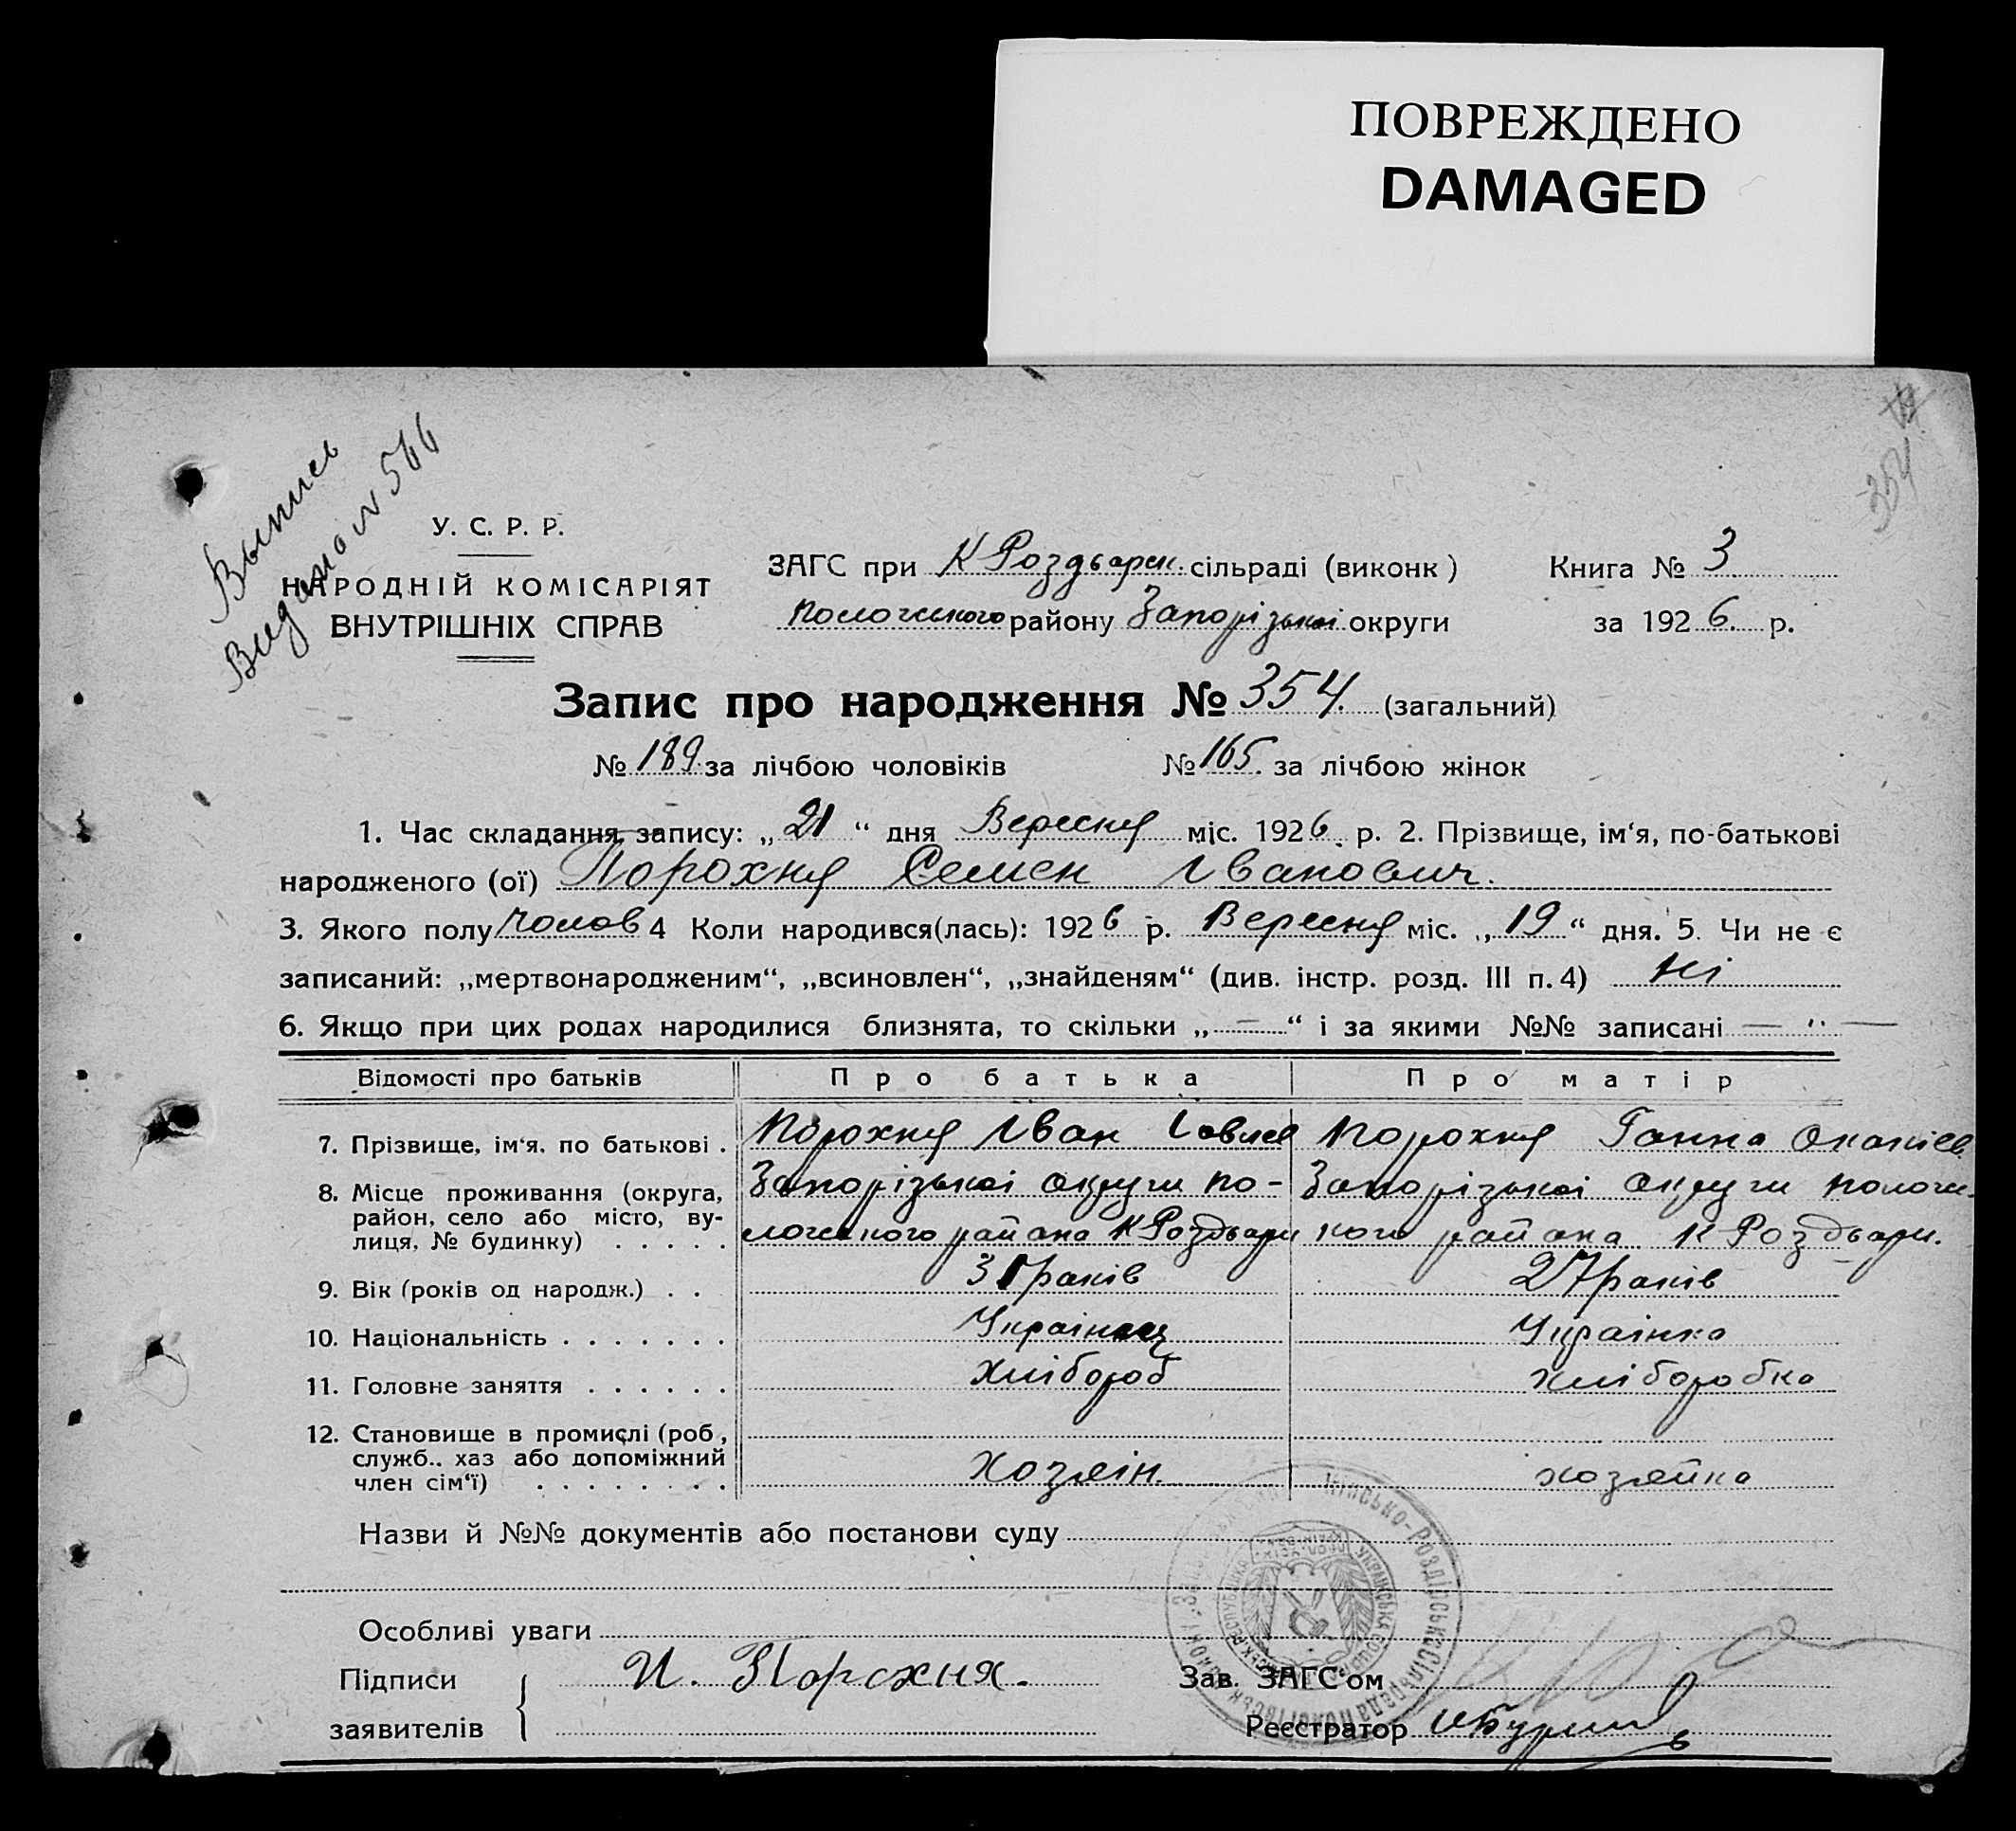 ПОВРЕЖДЕНО
DAMAGED
354
Выпись
Видано № 566
У. С. Р. Р.
НАРОДНІЙ КОМІСАРІЯТ
ВНУТРІШНІХ СПРАВ
ЗАГС при К Роздьорск. сільраді (виконк)
Пологського району Запорізької округи
Книга № 3
за 1926. р.
Запис про народження № 354. (загальний)
№ 189. за лічбою чоловіків № 165. за лічбою жінок
1. Час складання запису: „ 21 “ дня Вересня міс. 1926 р. 2. Прізвище, ім‘я, по-батькові
народженого (ої) Порохня Семен Іванович.
3. Якого полу чолов 4 Коли народився(лась): 1926 р. Вересня міс. „ 19 “ дня. 5. Чи не є
записаний: „мертвонародженим“, „всиновлен“, „знайденям“ (див. інстр. розд. III п. 4) Ні
6. Якщо при цих родах народилися близнята, то скільки „ — “ і за якими №№ записані — " —
Відомості про батьків Про батька Про матір
7. Прізвище, ім‘я. по батькові . Порохня Іван Порохня Ганна
8. Місце проживання (округа, Запорізької округи По- Запорізької округи Пологс-
район, село або місто, ву- логського района К Роздьорк кого района К Роздьорк.
лиця, № будинку) . . . . .
9. Вік (років од народж.) . . 31 років 27 років
10. Національність . . . . . . . Українец Українка
11. Головне заняття . . . . . . Хлібороб хліборобка
12. Становище в промислі (роб,
служб.. хаз або допоміжний
член сім‘ї) . . . . . . . . Хозяін. хозяйка
Назви й №№ документів або постанови суду
Особливі уваги
Підписи
заявителів
И. Порохня.
Зав. ЗАГС‘ом
Реєстратор